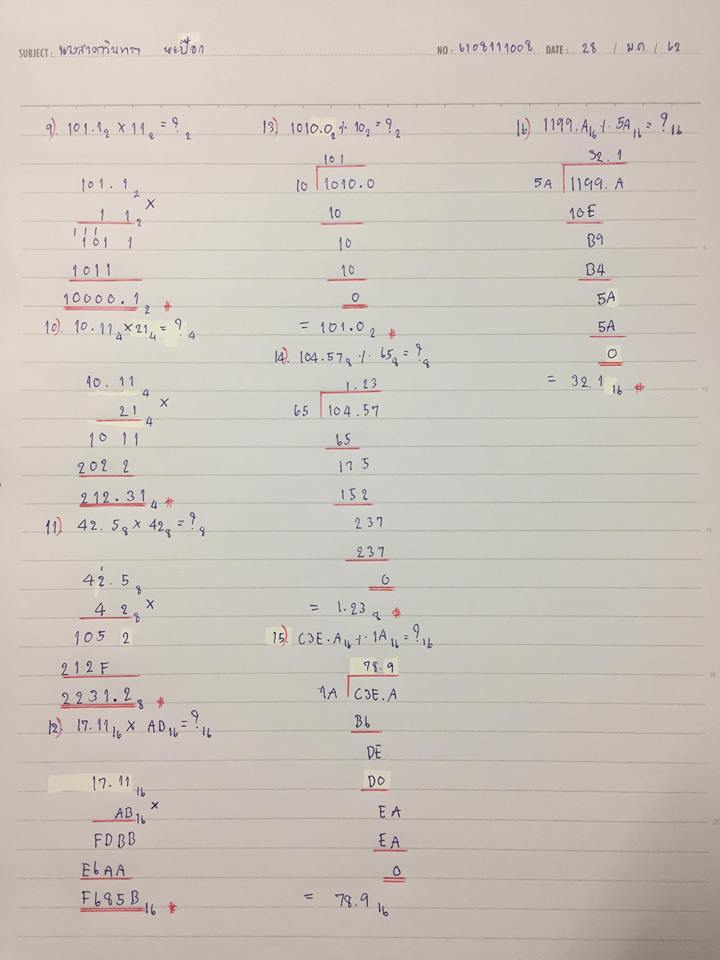 SUBJECT: นางสาวกวินทรา NO: 6108111008 DATE: 28 / ม.ค / 62
9). 101.1₂ × 11₂ = ?₂
101.1₂
1 1₂ ×
1 1 1
101 1
1011
10000.1₂ *
10). 10.11₄ × 21₄ = ?₄
10.11₄
21₄ ×
10 11
202 2
212.31₄ *
11). 42.5₈ × 42₈ = ?₈
1
42.5₈
4 2₈ ×
105 2
212F
2231.2₈ *
12). 17.11₁₆ × AD₁₆ = ?₁₆
17.11₁₆
AB₁₆ ×
FDBB
E6AA
F685B₁₆ *
13). 1010.0₂ ÷ 10₂ = ?₂
101
10 1010.0
10
10
10
0
= 101.0₂ *
14). 104.57₈ ÷ 65₈ = ?₈
1.23
65 104.57
65
175
152
237
237
0
= 1.23₈ *
15). C3E.A₁₆ ÷ 1A₁₆ = ?₁₆
78.9
1A C3E.A
B6
DE
D0
EA
EA
0
= 78.9₁₆
16). 1199.A₁₆ ÷ 5A₁₆ = ?₁₆
32.1
5A 1199.A
10E
B9
B4
5A
5A
0
= 32.1₁₆ *